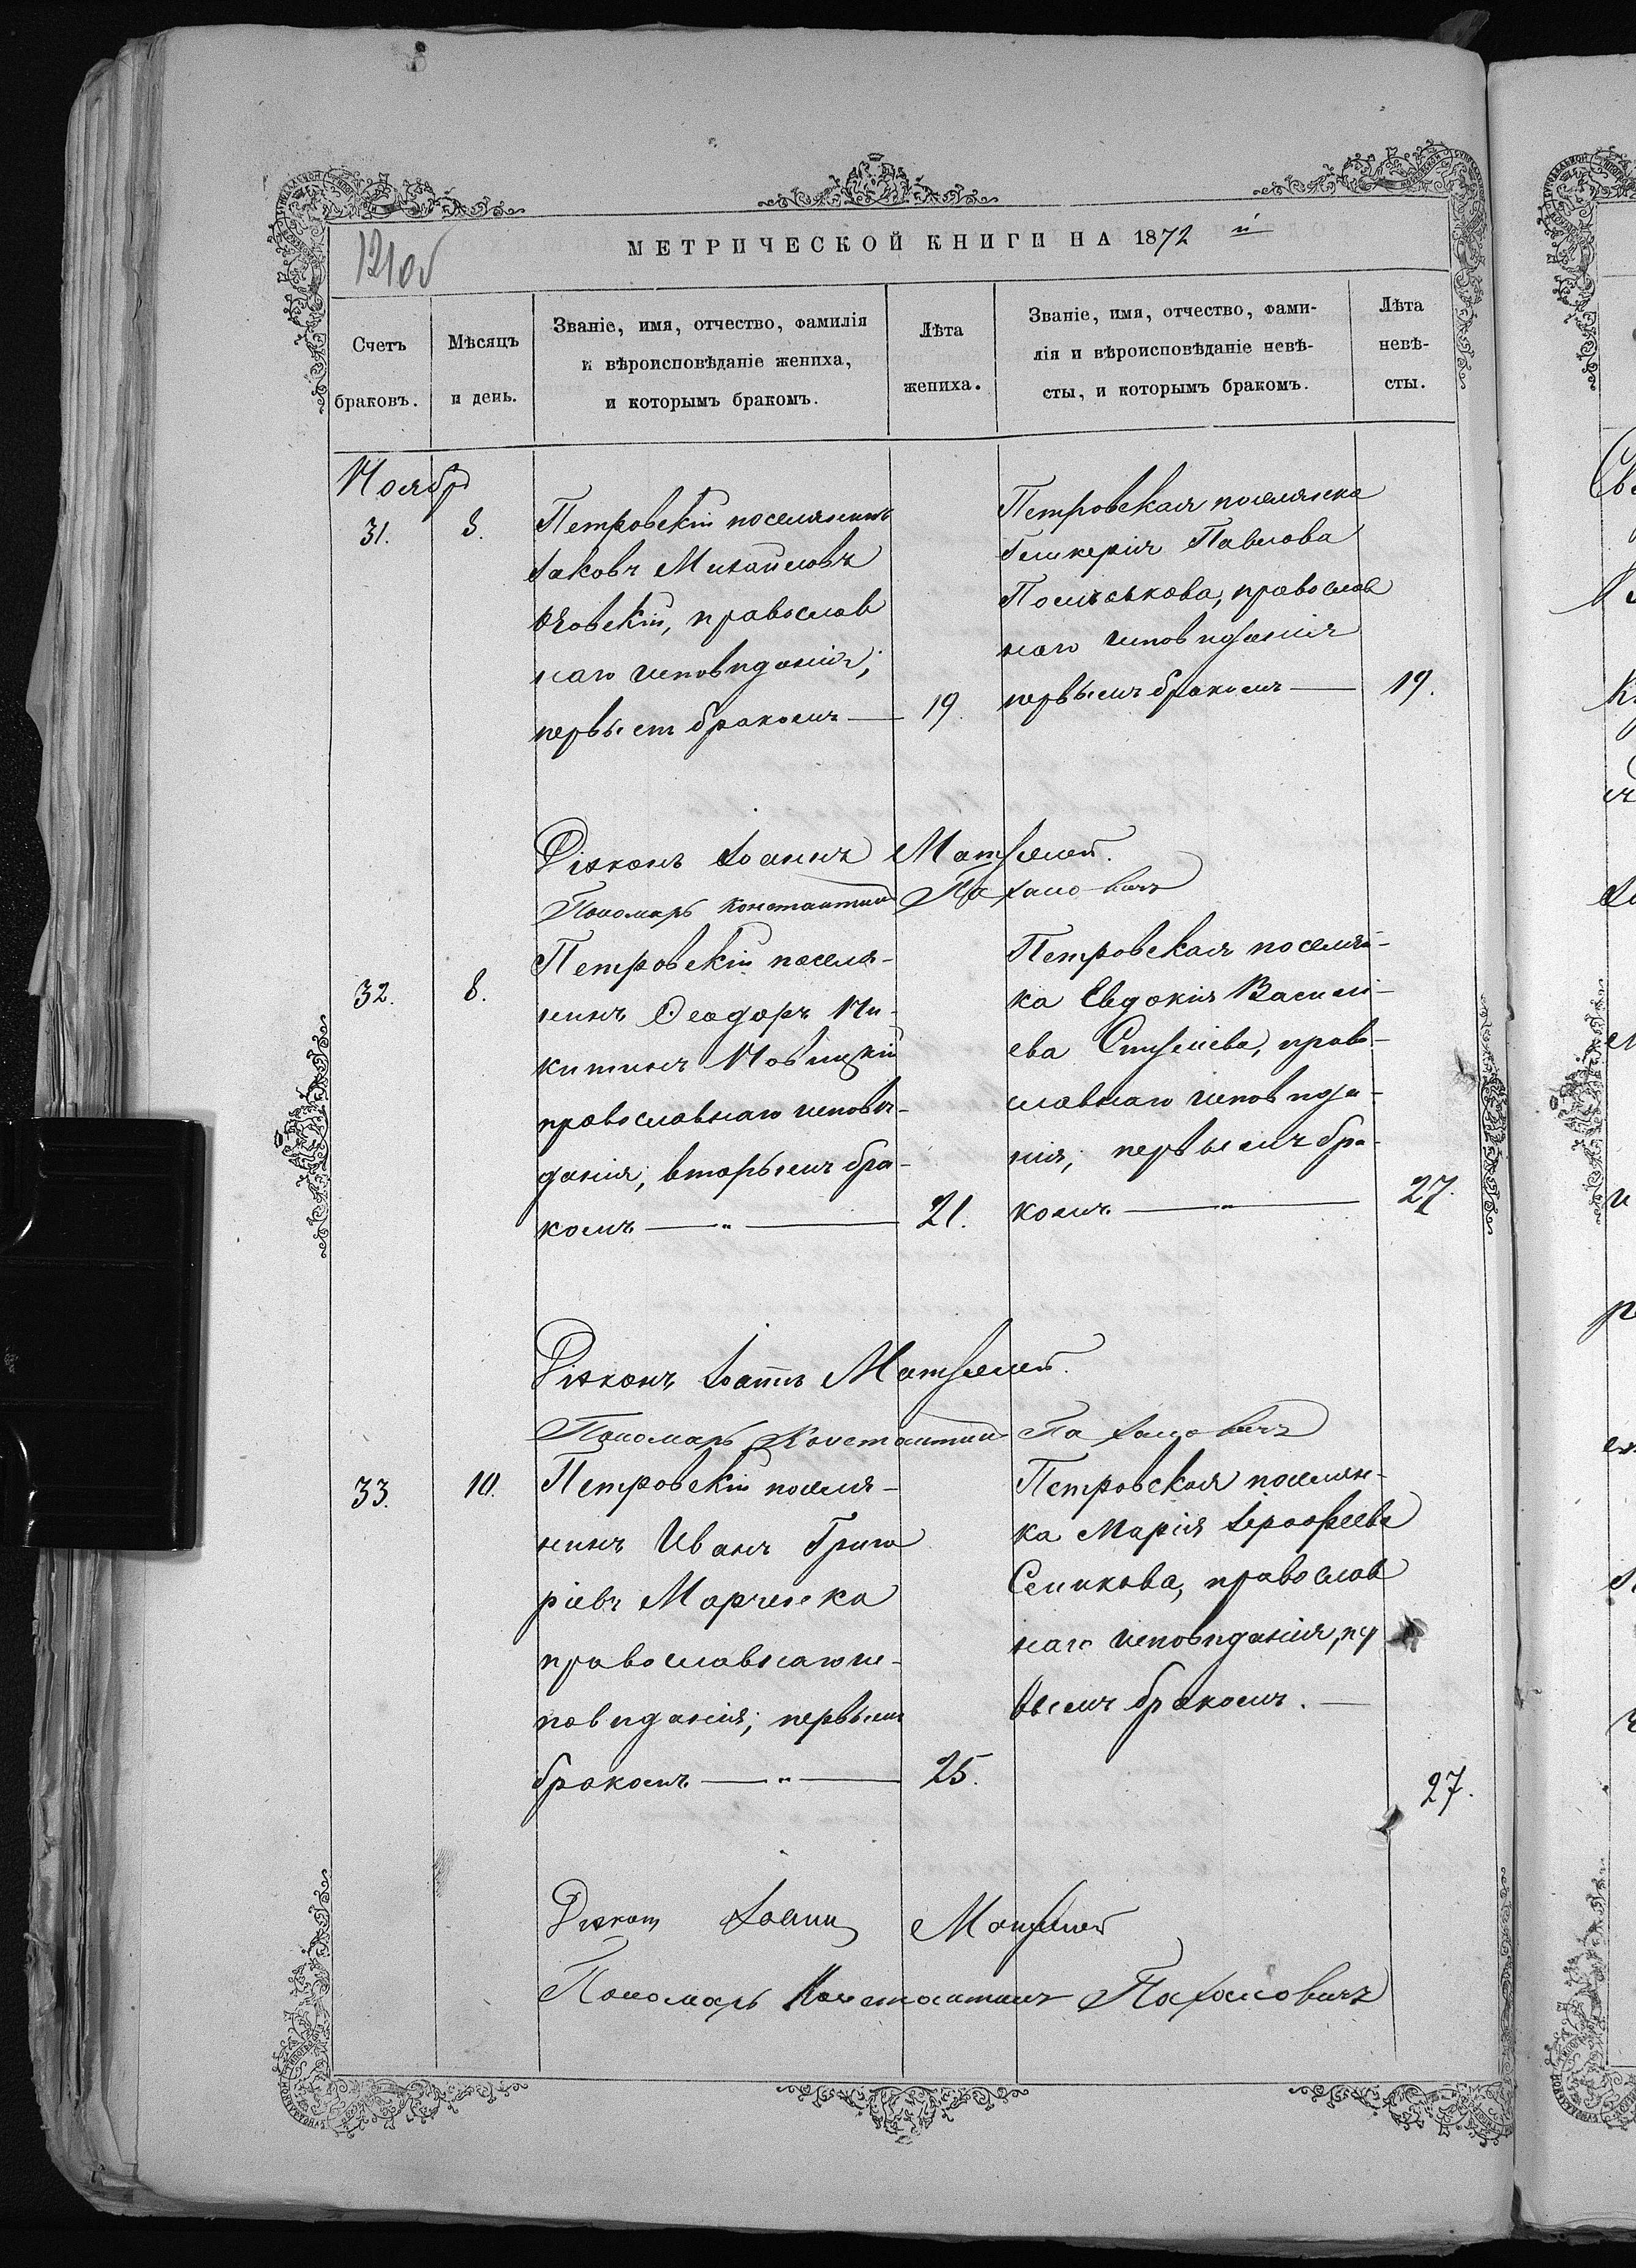 121об
МЕТРИЧЕСКОЙ КНИГИ НА 1872 й
Счетъ браковъ.
Мѣсяцъ и день.
Званіе, имя, отчество, фамилія
и вѣроисповѣданіе жениха,
и которымъ бракомъ.
Лѣта жениха.
Званіе, имя, отчество, фами-
лія и вѣроисповѣданіе невѣ-
сты, и которымъ бракомъ.
Лѣта невѣ-
сты.
Ноябр
31.
8.
Петровскій поселянинъ
Іаковъ Михайловъ
православ
наго исповѣданія,
первымъ бракомъ —
19.
Петровская поселянка
Гликерія Павлова
православ
наго исповѣданія
первымъ бракомъ —
19.
Діяконъ Іоаннъ
Пономарь Константинъ
32.
8.
Петровскій поселя-
нинъ Ѳеодоръ Ни-
китинъ Новицкій
православнаго исповѣ-
данія, вторымъ бра-
комъ — " —
21.
Петровская поселян-
ка Евдокія Василі-
ева право-
славнаго исповѣда-
нія, первымъ бра-
комъ — " —
27.
Діяконъ Іоаннъ
Пономарь Константинъ
33.
10.
Петровскій поселя-
нинъ Иванъ Григо
ріевъ Марченко
православнаго ис-
повѣданія, первымъ
бракомъ — " —
25.
Петровская поселян-
ка Марія Іероѳеева
Сеникова, православ
наго исповѣданія, пер
вымъ бракомъ. —
27.
Діяконъ Іоаннъ
Пономарь Константинъ